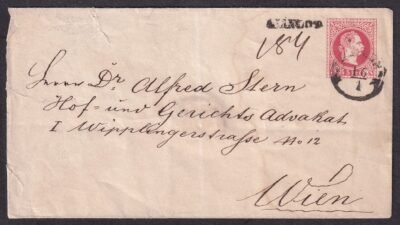 184
Herrn Dr Alfred Stern
Hof- und Gerichts Advokat
I Wipplingerstraſse No 12
Wien